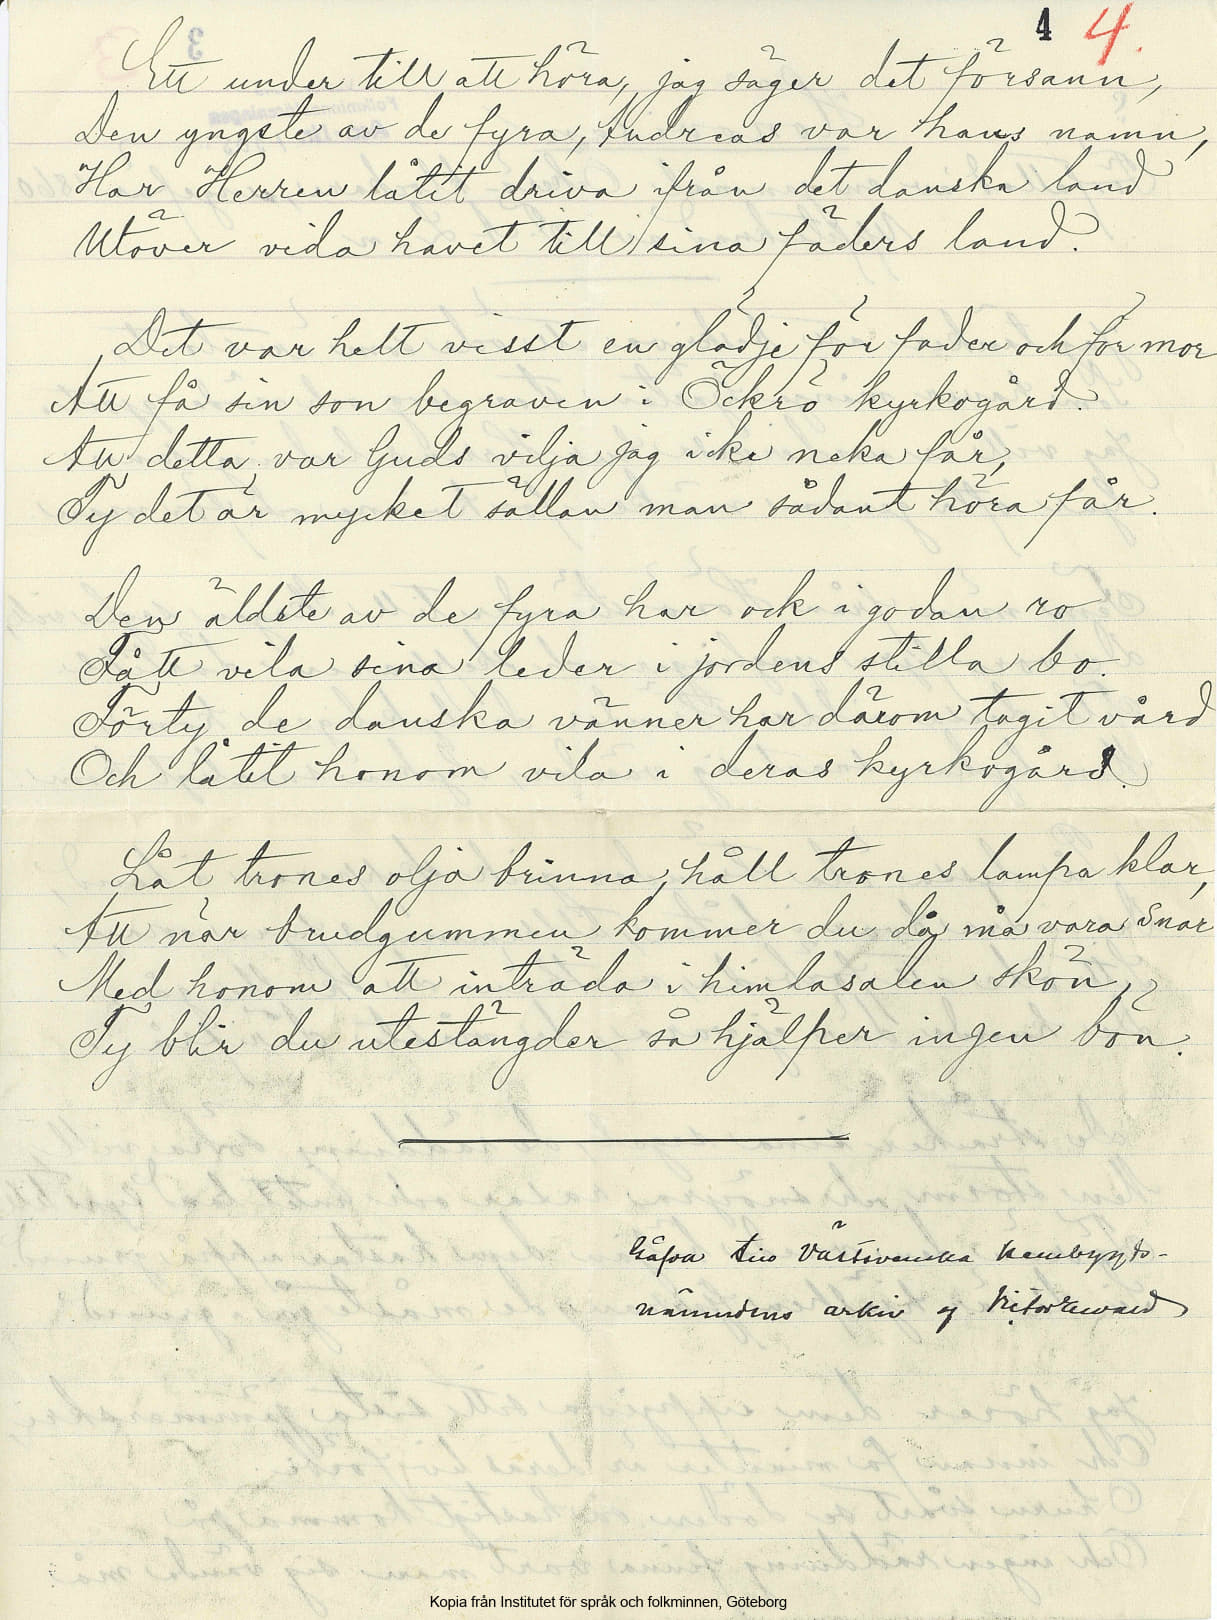 4 4.
Ett under till att höra, jag säger det försann,
Den yngste av de fyra, Andreas var hans namn,
Har Herren låtit driva ifrån det danska land
Utöver vida havet till sina fäders land.
Det var helt visst en glädje för fader och för mor
Att få sin son begraven i Öckrö kyrkogård.
Att detta var Guds vilja jag icke neka får,
Ty det är mycket sällan man sådant höra får.
Den äldste av de fyra har ock i godan ro
Fått vila sina leder i jordens stilla bo.
Förty de danska vänner har därom tagit vård
Och låtit honom vila i deras kyrkogård.
Låt trones olja brinna, håll trones lampa klar,
Att när brudgummen kommer du då må vara snar
Med honom att inträda i himlasalen skön,
Ty blir du utestängder så hjälper ingen bön.
Gåfva till Västsvenska hembygds-
nämndens arkiv af
Kopia från Institutet för språk och folkminnen, Göteborg